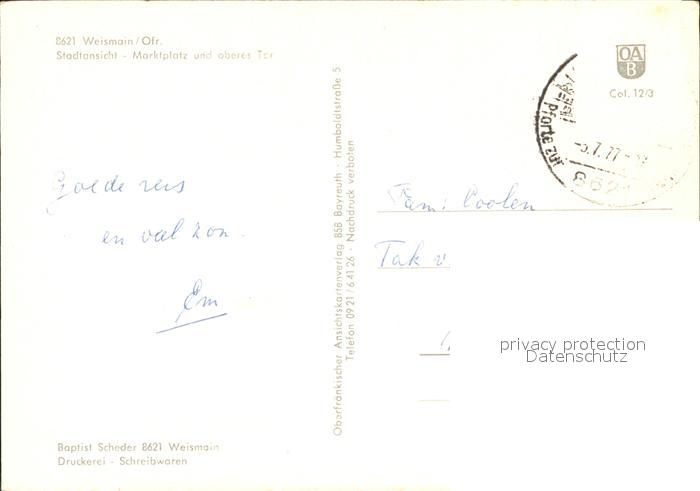 8621 Weismain/Ofr.
Stadtansicht - Marktplatz und oberes Tor
OA
B
Col. 12/3
Pforte z
-5.7.77-
8621
Goede reis
en veel zon.
Em
Fam: Coolen
Tak v
Oberfränkischer Ansichtskartenverlag 858 Bayreuth · Humboldtstraße 5
Telefon 09 21 / 6 41 26 · Nachdruck verboten
privacy protection
Datenschutz
Baptist Scheder 8621 Weismain
Druckerei - Schreibwaren